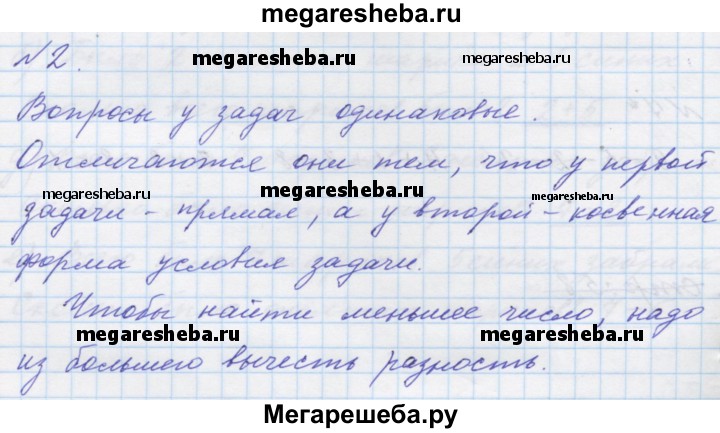 megaresheba.ru
№2.
megaresheba.ru
Вопросы у задач одинаковые.
Отличаются они тем, что у первой
megaresheba.ru megaresheba.ru megaresheba.ru
задачи - прямая, а у второй - косвенная
форма условия задачи.
Чтобы найти меньшее число, надо
megaresheba.ru megaresheba.ru
из большего вычесть разность.
Мегарешеба.ру